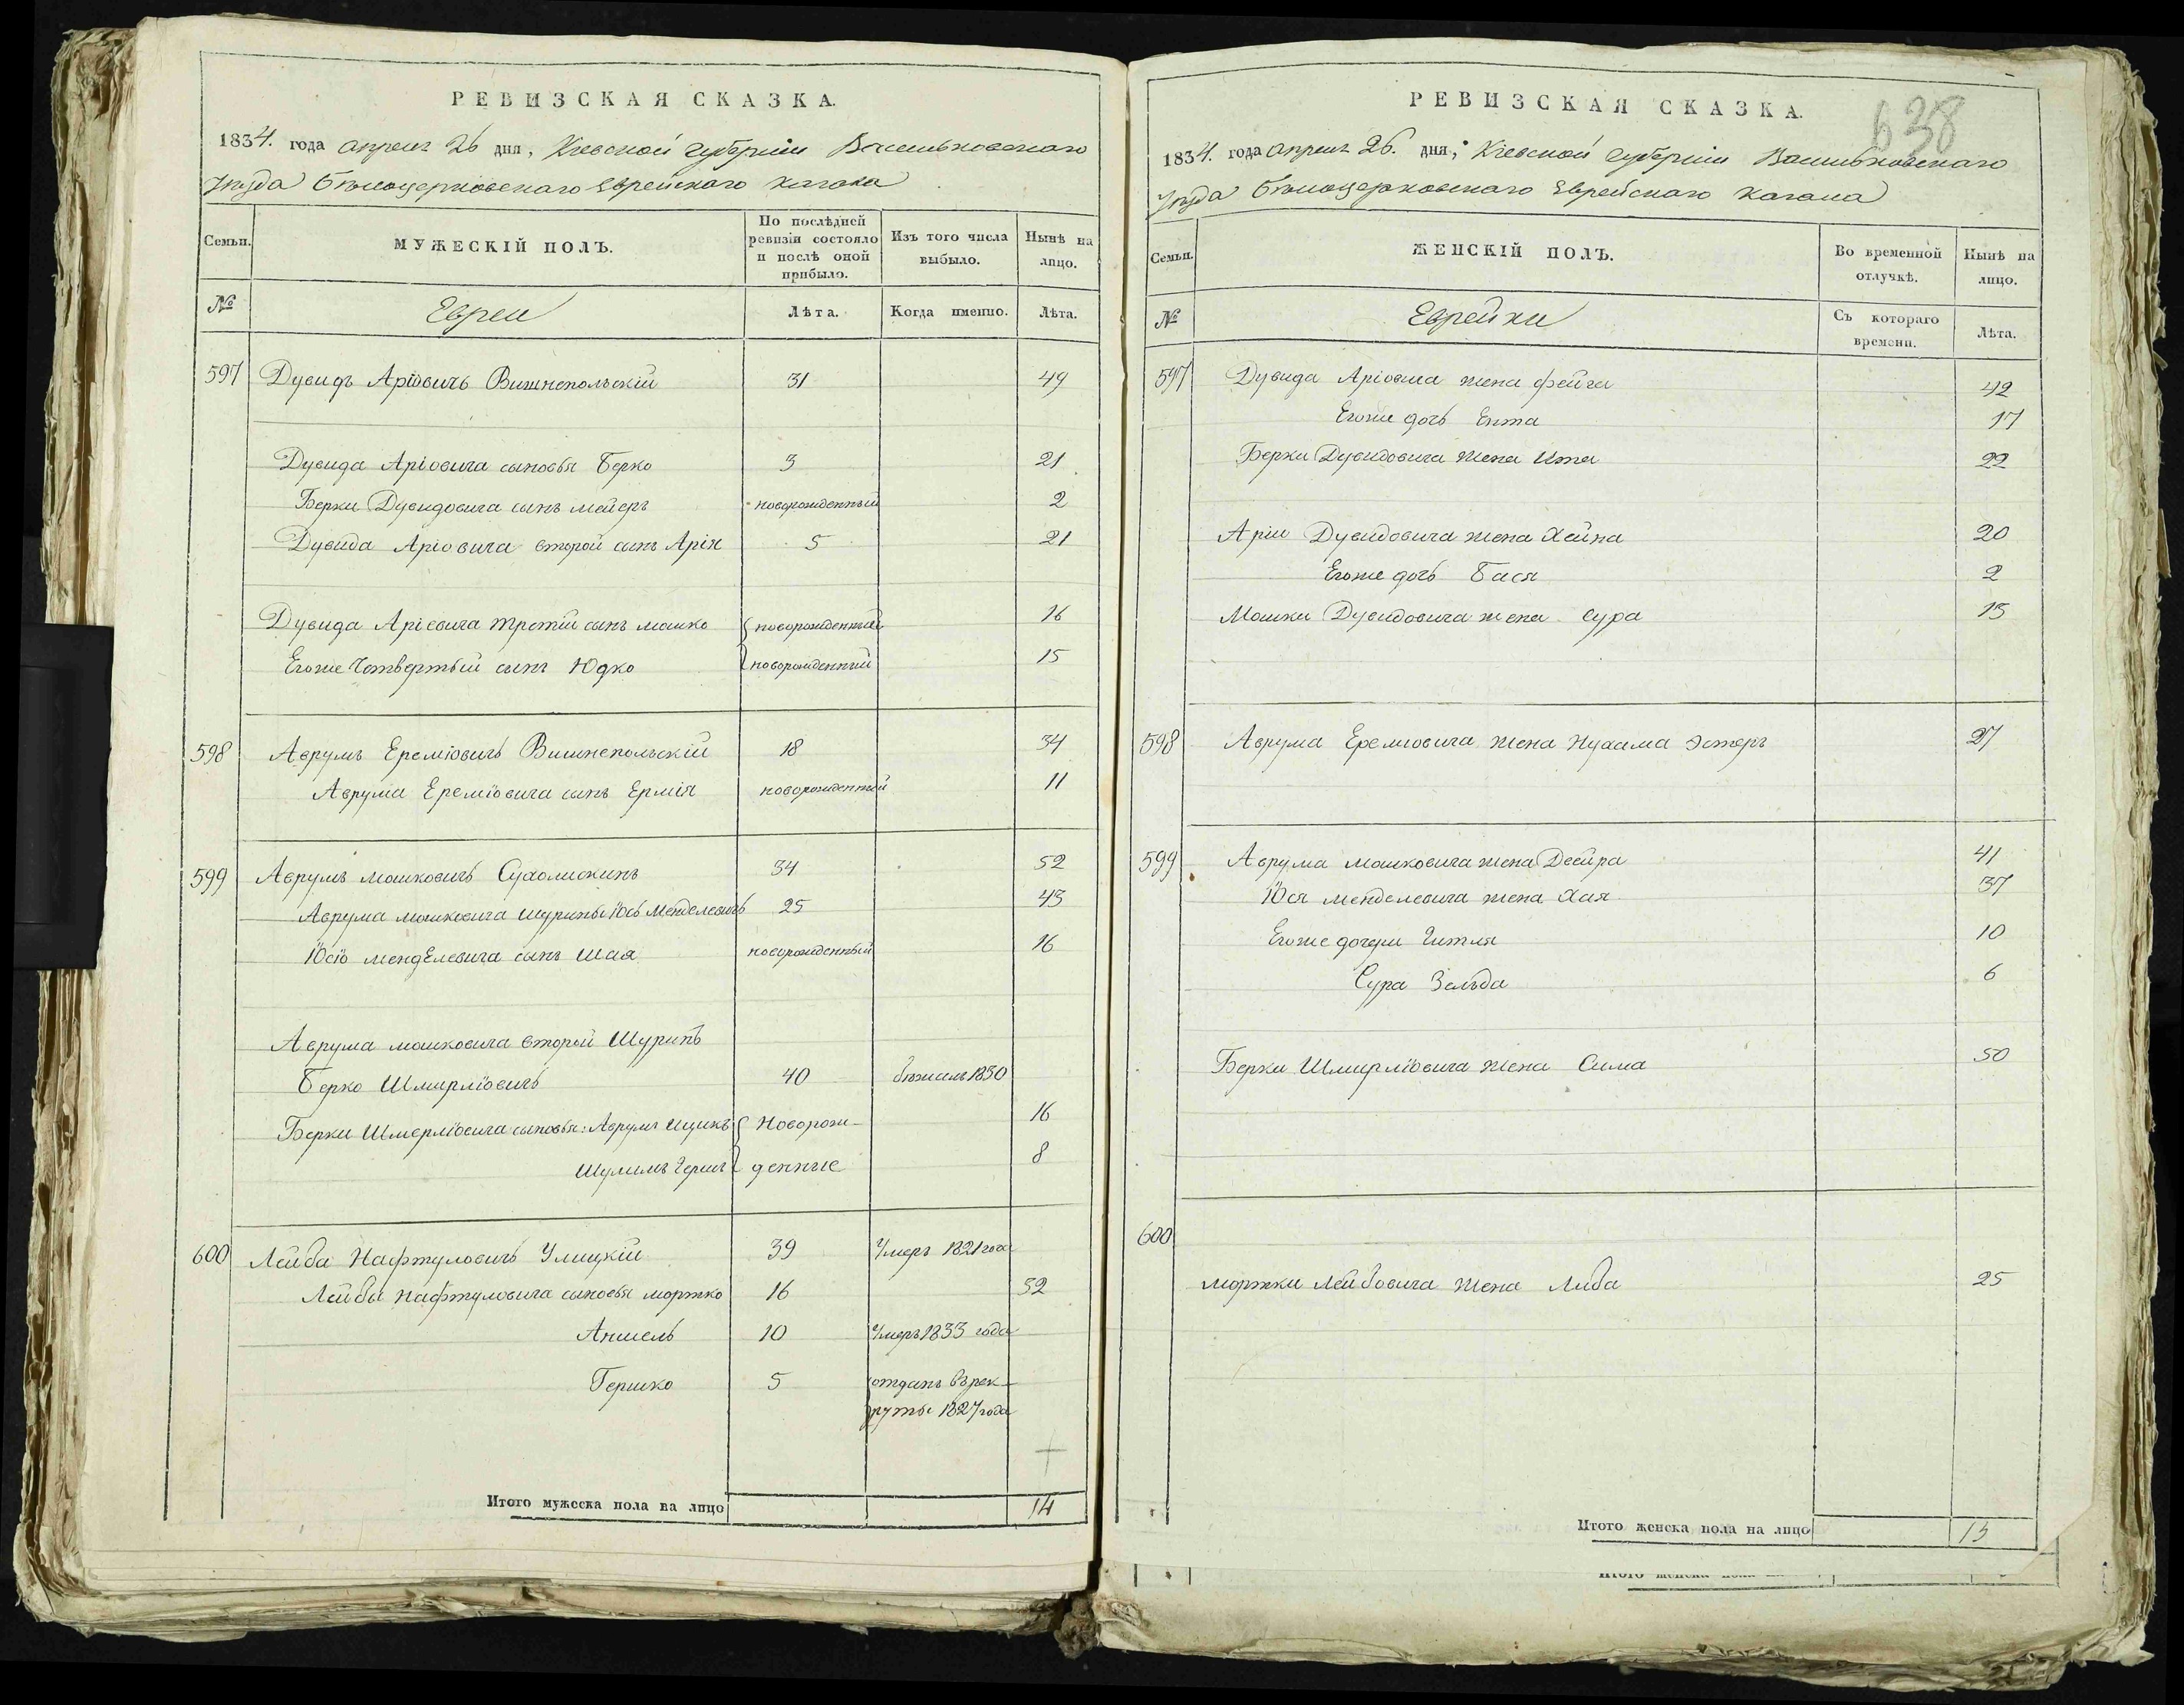 РЕВИЗСКАЯ СКАЗКА.
1834. года апреля 26 дня, Кіевской губерніи Васильковскаго
уѣзда Бѣлоцерковскаго Еврейскаго кагала
Семьи.
МУЖЕСКІЙ ПОЛЪ.
По послѣдней ревизіи состояло и послѣ оной прибыло.
Изъ того числа выбыло.
Нынѣ на лицо.
№
Евреи
Лѣта.
Когда именно.
Лѣта.
597 Дувидъ Аріовичъ Вишнепольскій 31 49
Дувида Аріовича сыновья Берко 3 21
Берки Дувидовича сынъ мейеръ новорожденный 2
Дувида Аріовича второй сынъ Арія 5 21
Дувида Аріевича третій сынъ мошко новорожденный 16
Егоже Четвертый сынъ Юдко новорожденный 15
598 Аврумъ Ереміовичъ Вишнепольскій 18 34
Аврума Ереміовича сынъ Ермія новорожденный 11
599 Аврумъ мошковичъ Сухолискинъ 34 52
Аврума мошковича шуринъ Юсь Менделевичъ 25 43
Юсіо менделевича сынъ шая новорожденный 16
Аврума мошковича второй Шуринъ
Берко Шмирліовичъ 40 бѣжалъ 1830
Берки Шмерліовича сыновья: Аврумъ Ицикъ Новорож- 16
Шулимъ Гершъ денные 8
600 Лейба Нафтуловичъ Улицкій 39 Умеръ 1821 года
Лейбы Нафтуловича сыновья мортко 16 32
Аншель 10 Умеръ 1833 года
Гершко 5 отданъ въ рек-
руты 1827 года
Итого мужеска пола на лицо 14
638
РЕВИЗСКАЯ СКАЗКА.
1834. года апреля 26. дня, Кіевской губерніи Васильковскаго
уѣзда Бѣлоцерковскаго Еврейскаго кагала
Семьи.
ЖЕНСКІЙ ПОЛЪ.
Во временной отлучкѣ.
Нынѣ на лицо.
№
Еврейки
Съ котораго времени.
Лѣта.
597 Дувида Аріовича жена фейга 42
Егоже дочь Ента 17
Берки Дувидовича жена Ита 22
Аріи Дувидовича жена Хейна 20
Егоже дочь Бася 2
Мошки Дувидовича жена Сура 15
598 Аврума Ереміовича жена Нухама Эстеръ 27
599 Аврума мошковича жена Двейра 41
Юся менделевича жена Хая 37
Егоже дочери Гитля 10
Сура Зельда 6
Берки Шмирліовича жена Сима 50
600
мортки Лейбовича жена Либа 25
Итого женска пола на лицо 13